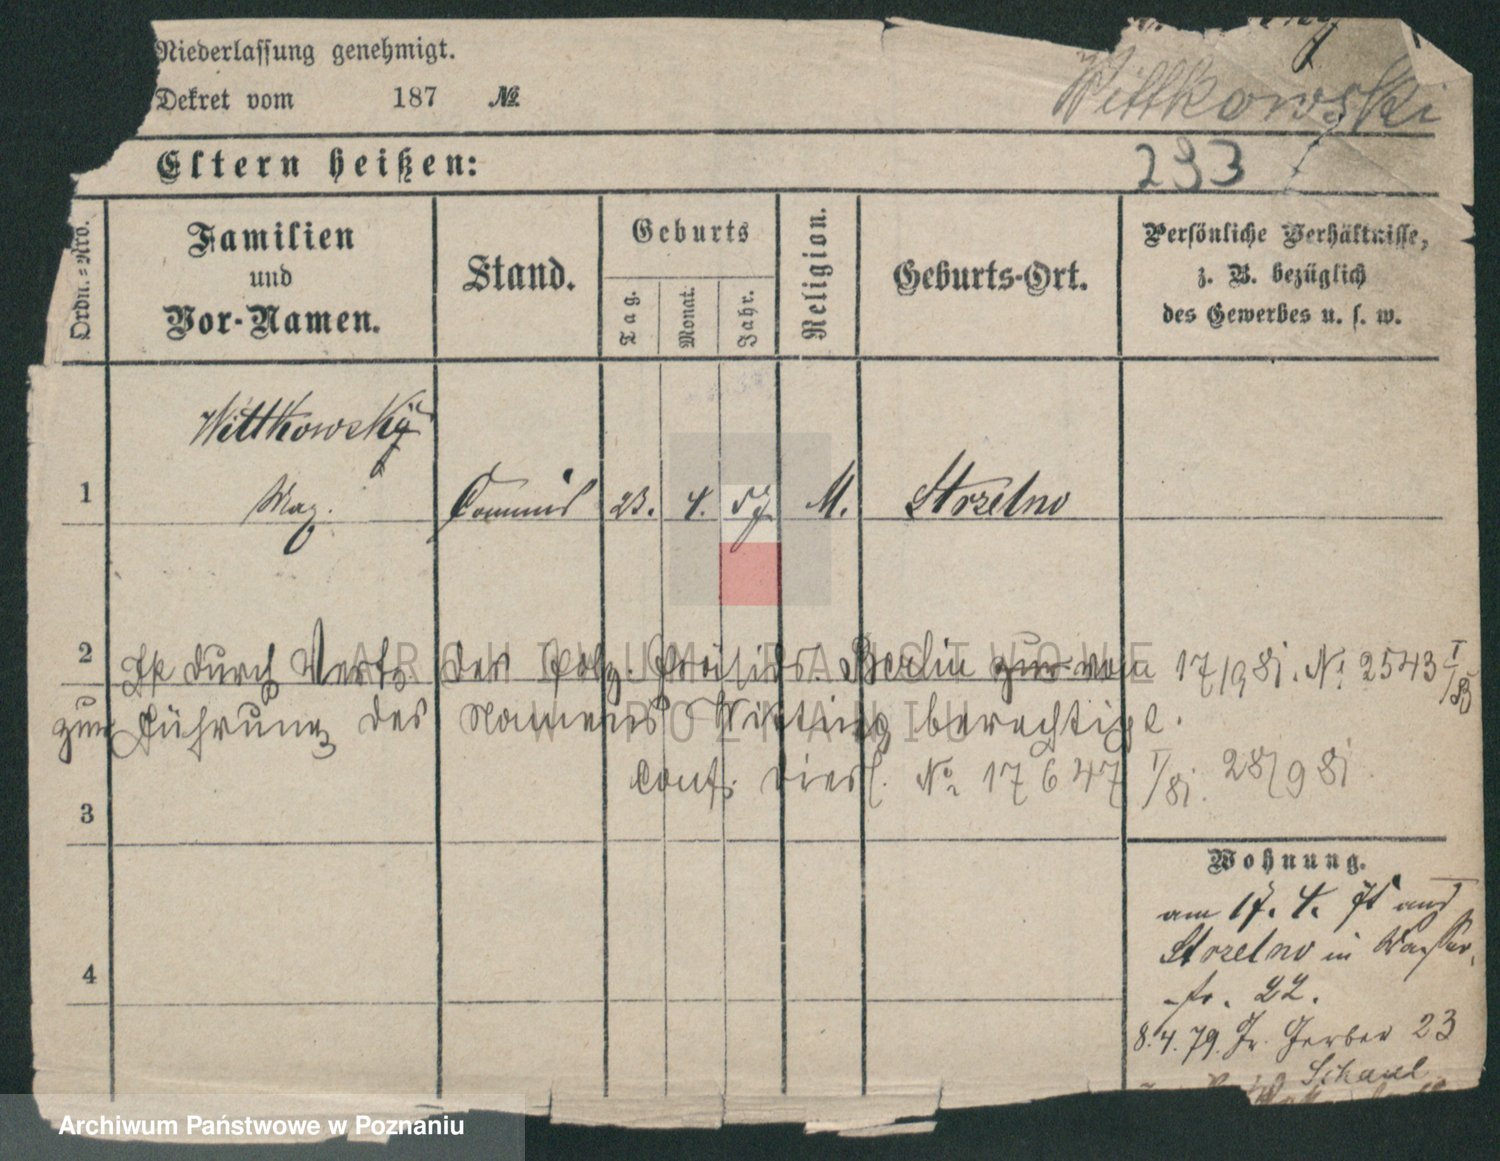 Niederlassung genehmigt.
Wittkowski
Dekret vom 187 №
Eltern heißen:
233
Ordn.=Nro.
Familien
und
Vor-Namen.
Stand.
Geburts
Tag.
Monat.
Jahr.
Religion.
Geburts-Ort.
Persönliche Verhältnisse,
z. B. bezüglich
des Gewerbes u. s. w.
Wittkowský
1 Max. Commis 23. 4. 57 M. Strzelno
2 Ist durch Verf. des Poliz. Präsids. Berlin zur vom 17/9 81. No 2543
zur Führung des Namens Witting berechtigt.
conf. dies. No 17647 I/81. 28/9 81
3
4
Wohnung.
am 17. 4. 78 aus
Strzelno in Wasser-
str. 22.
8.4.79. Gr. Gerber 23
ARCHIWUM PAŃSTWOWE
W POZNANIU
Archiwum Państwowe w Poznaniu